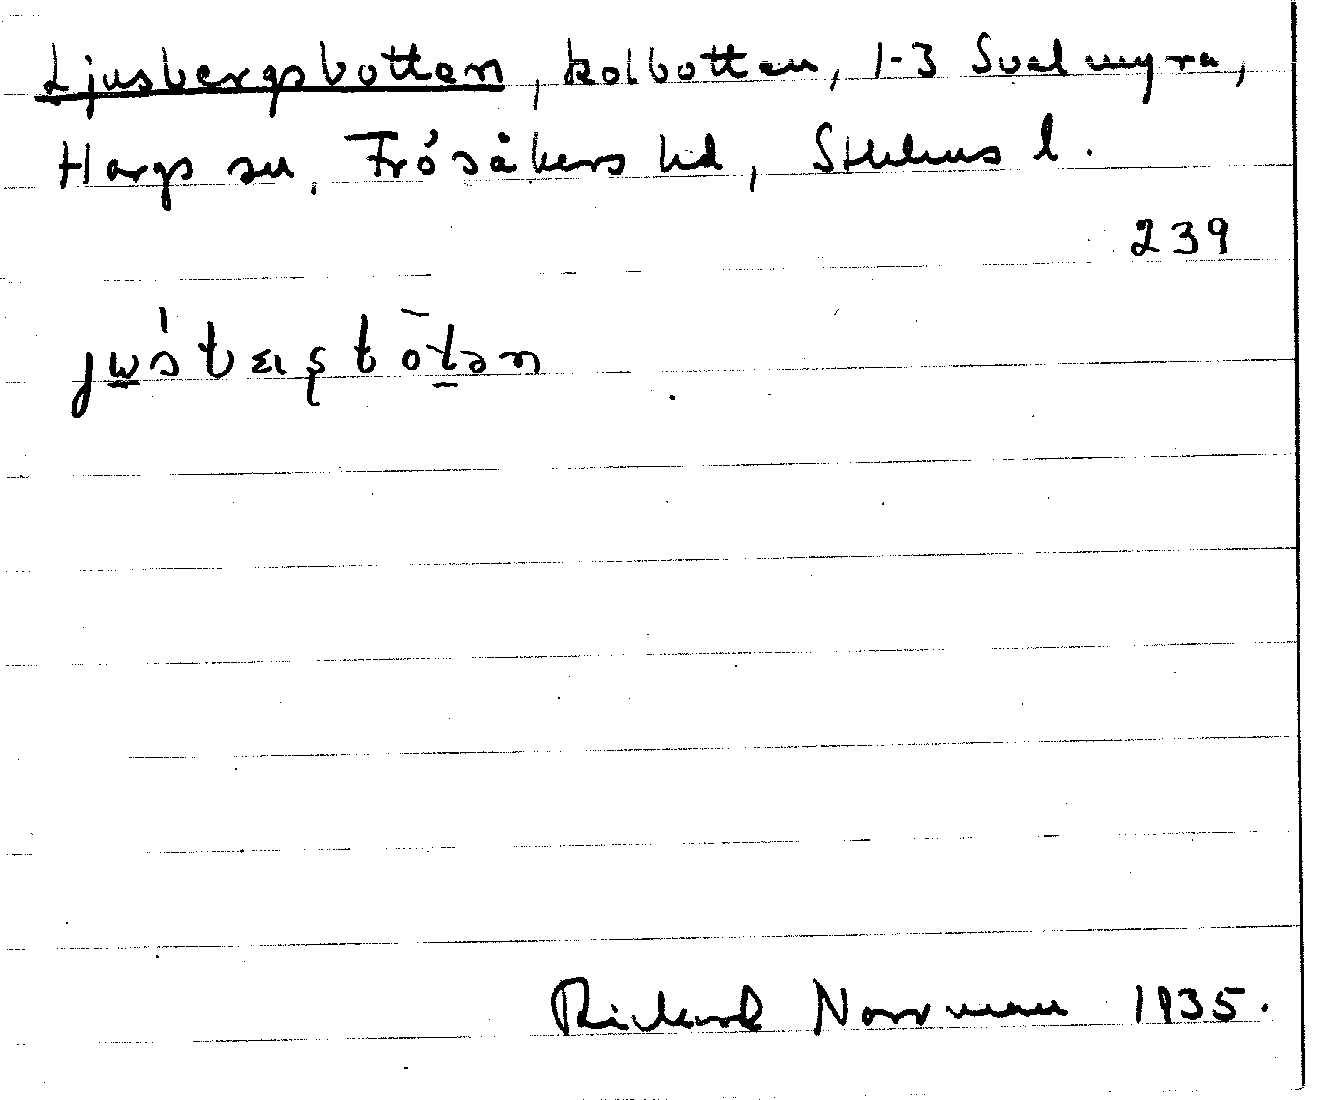 Ljusbergsbotten, kolbotten, 1-3 Svalmyra,
Hargs sn, Frösåkers hd, Sthlms l.
239
Rickard Norrman 1935.